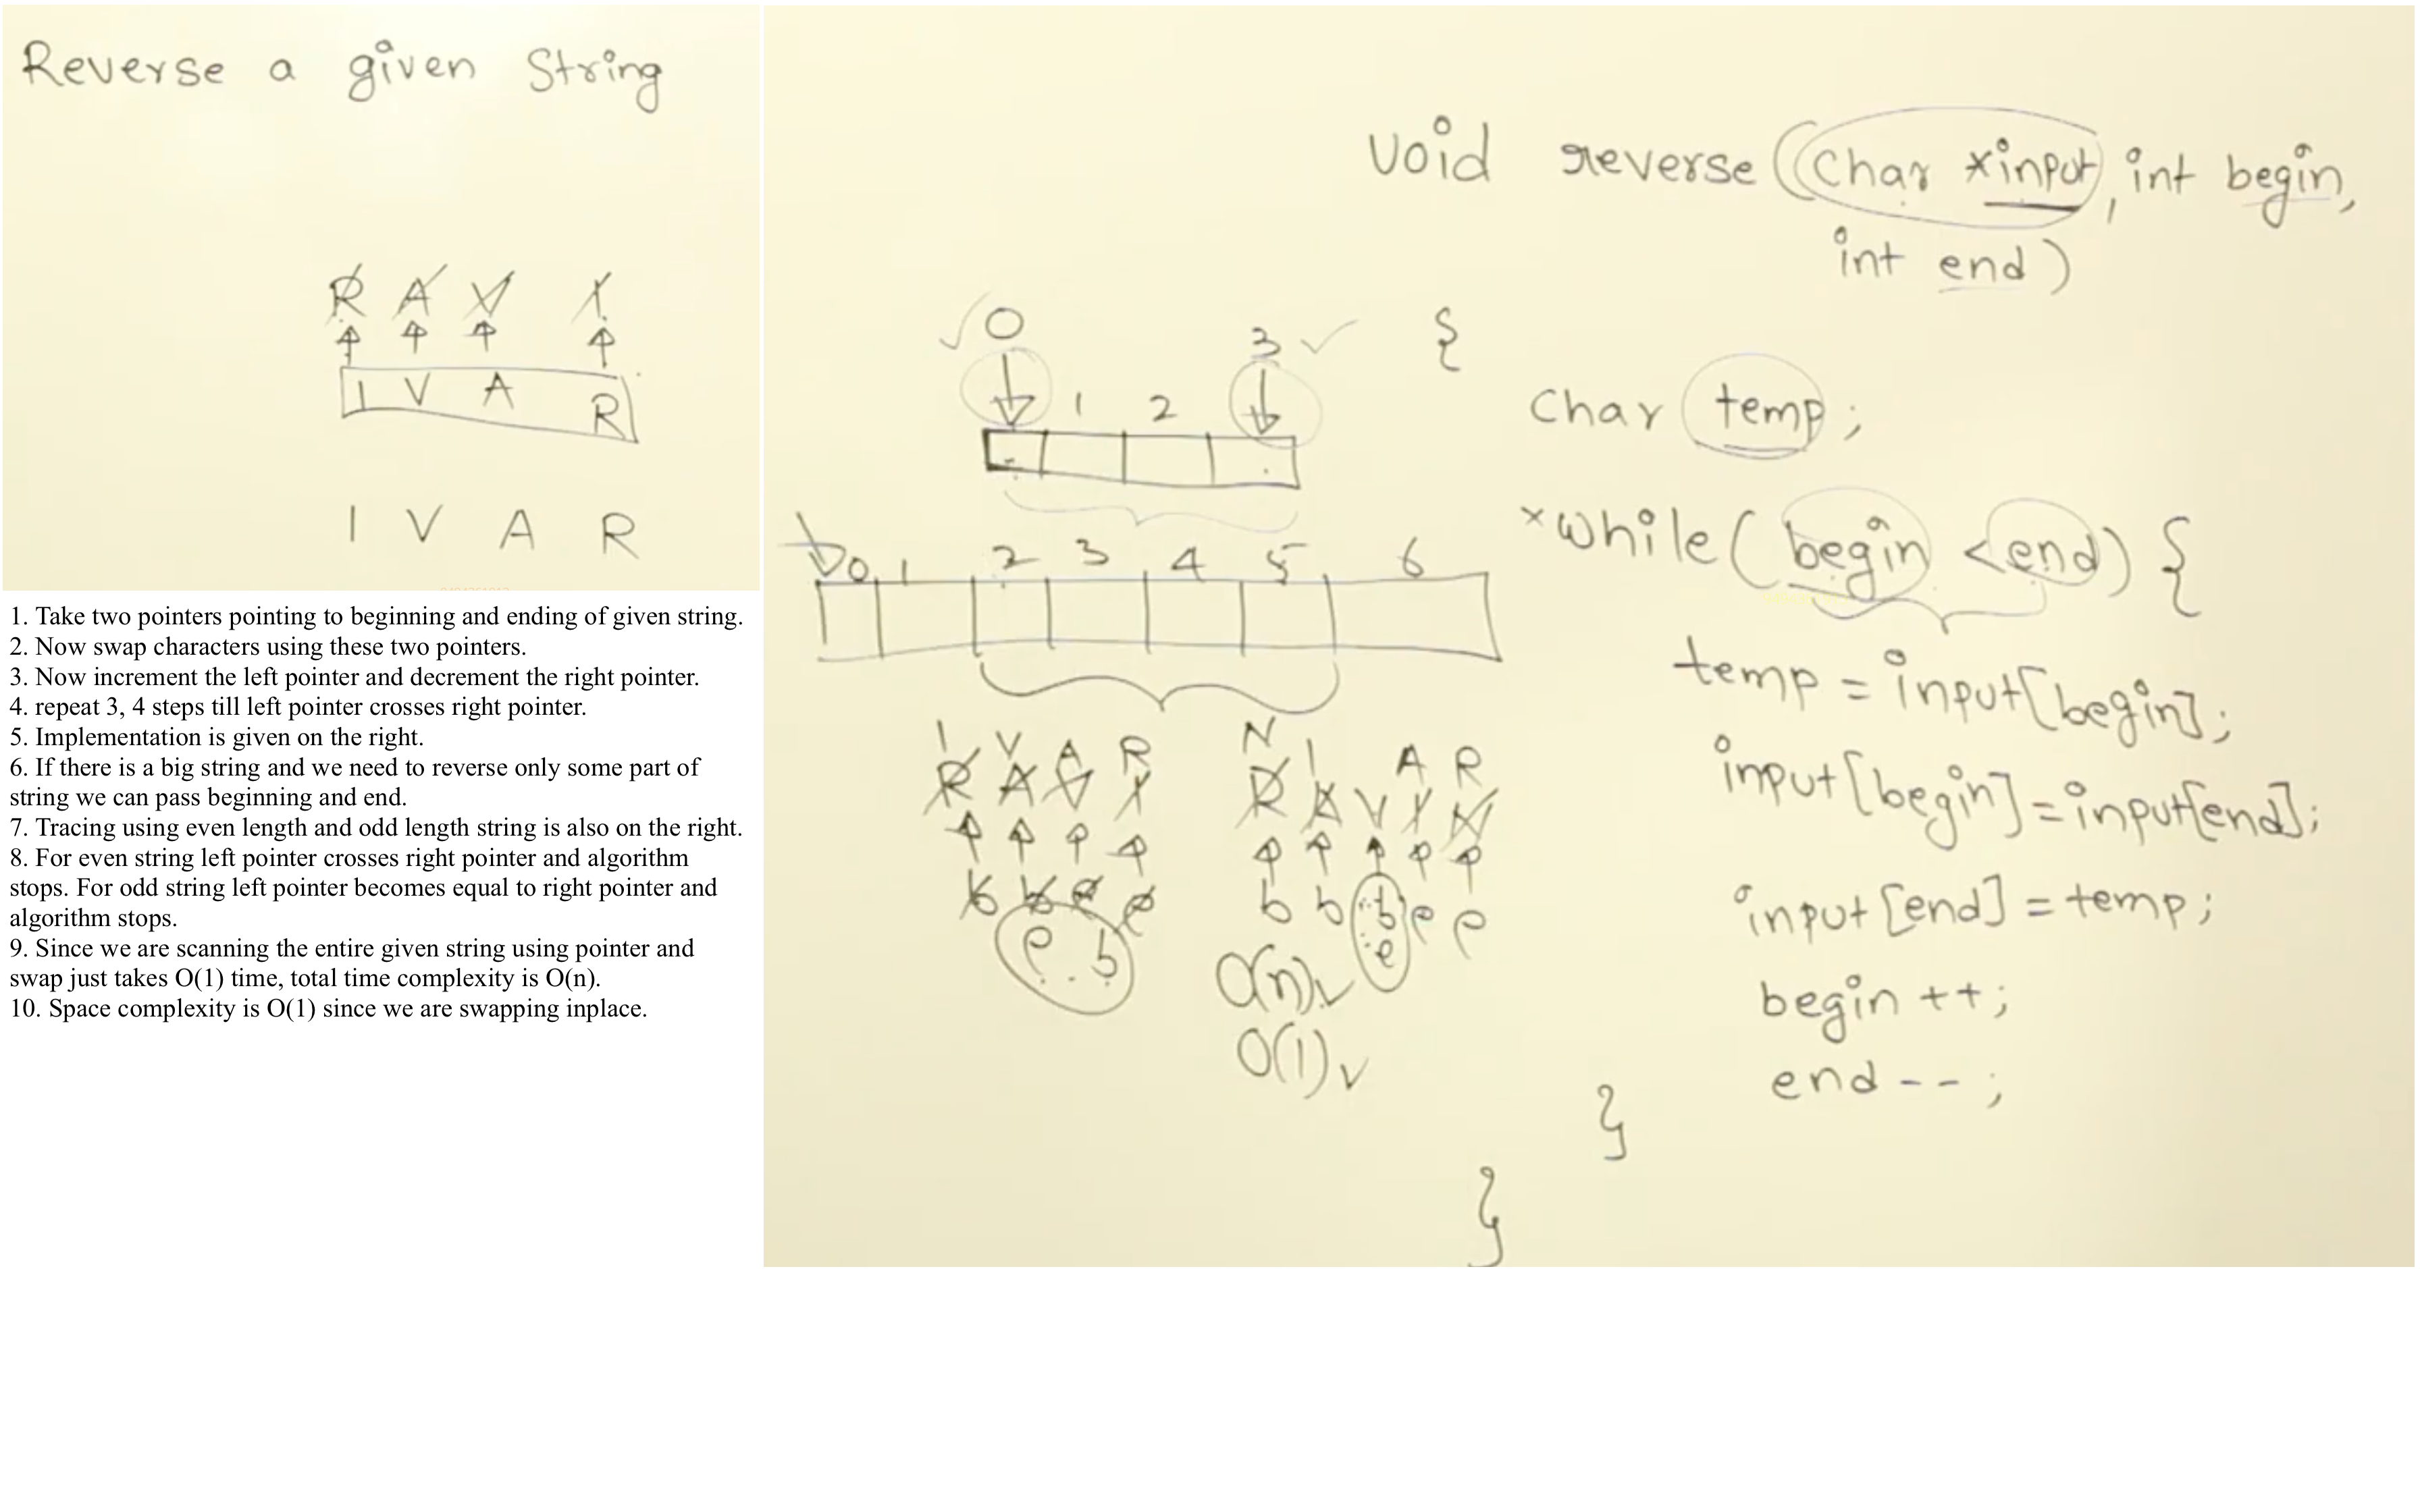 Reverse a given String
R A V I
I V A R
I V A R
1. Take two pointers pointing to beginning and ending of given string.
2. Now swap characters using these two pointers.
3. Now increment the left pointer and decrement the right pointer.
4. repeat 3, 4 steps till left pointer crosses right pointer.
5. Implementation is given on the right.
6. If there is a big string and we need to reverse only some part of
string we can pass beginning and end.
7. Tracing using even length and odd length string is also on the right.
8. For even string left pointer crosses right pointer and algorithm
stops. For odd string left pointer becomes equal to right pointer and
algorithm stops.
9. Since we are scanning the entire given string using pointer and
swap just takes O(1) time, total time complexity is O(n).
10. Space complexity is O(1) since we are swapping inplace.
0 3
1 2
0 1 2 3 4 5 6
I V A R
R A V I
b b e e
e b
N I A R
R A V I N
b b b e e
e
O(n)
O(1)
void reverse(char *input, int begin,
int end)
{
char temp;
*while(begin <end) {
temp = input[begin];
input[begin]=input[end];
input[end]=temp;
begin ++;
end --;
}
}